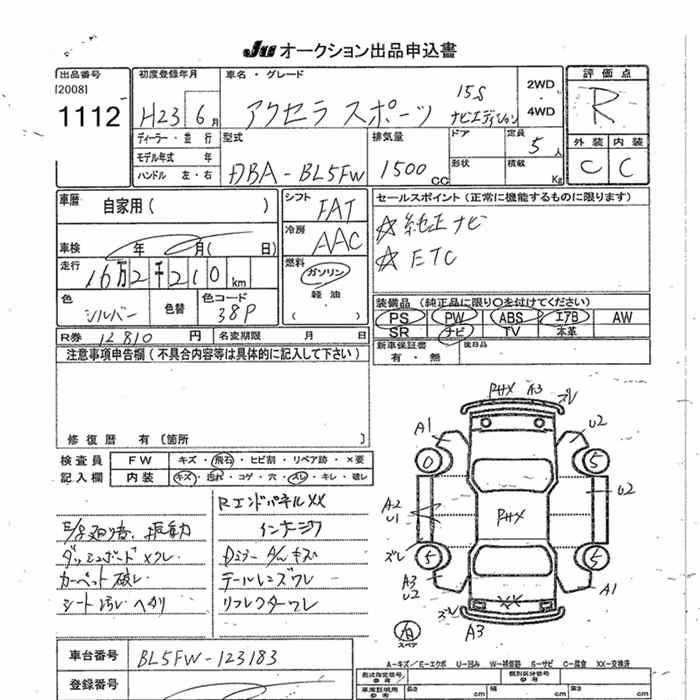 JU オークション出品申込書
出品番号
[2008]
1112
初度登録年月
H23 6月
ディーラー・並行
モデル年式 年
ハンドル 左・右
車名・グレード
アクセラ スポーツ 15S
ナビエディション
2WD
・
4WD
評価点
R
外装 内装
C C
型式
DBA-BL5FW
排気量
1500cc
ドア
定員
5人
形状
積載
Kg
車歴
自家用( )
車検 年 月( 日)
走行
16万2千210km
色
シルバー
色替
色コード
38P
シフト
FAT
冷房
AAC
燃料
ガソリン
軽油
( )
セールスポイント(正常に機能するものに限ります)
☆純正ナビ
☆ETC
装備品(純正品に限り○を付けてください)
PS PW ABS エアB AW
SR ナビ TV 本革
R券 12810円
名変期限 月 日
新車保証書
有・無
後日品
注意事項申告欄(不具合内容等は具体的に記入して下さい)
修復歴 有〔箇所
検査員
記入欄
FW キズ・飛石・ヒビ割・リペア跡・×要
内装 キズ・汚れ・コゲ・穴・スレ・キレ・破レ
振動
ダッシュボード
カーペット破レ
シート汚レ ヘタリ
RエンドパネルXX
テールレンズワレ
リフレクターワレ
PHX A3 ズレ
A1
U2
0
5
A2
U1
U2
PHX
ズレ
5
5
A3
U2
A1
XX
ズレ
A3
スペア
車台番号
BL5FW-123183
登録番号
A-キズ/E-エクボ U-凹み W-補修跡 S-サビ C-腐食 XX-交換済
型式指定番号
参考
類別区分番号
参考
車庫証明用
参考
長さ cm
幅 cm
高さ cm